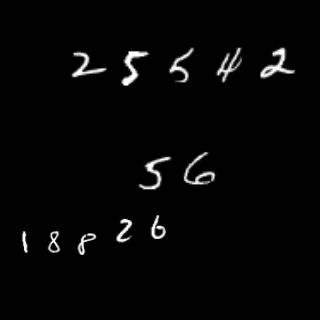 25542
56
18826